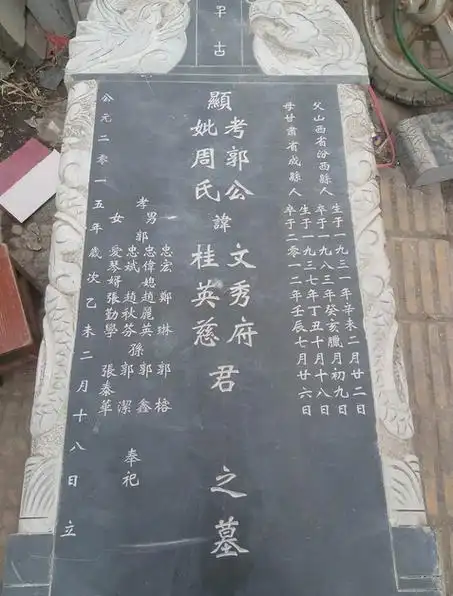 千古
父山西省汾西縣人
生于一九三一年辛未二月廿二日
卒于一九八三年癸亥臘月初九日
母甘肅省成縣人
生于一九三七年丁丑十月十八日
卒于二零一二年壬辰七月廿六日
顯
考郭公
妣周氏
諱
文秀府
桂英慈
君
之墓
孝男郭
忠宏 鄭琳 郭榕
忠偉媳趙麗英 孫 郭鑫
忠斌 趙秋芬 郭潔
女 愛琴婿張勤學 張泰華
奉祀
公元二零一五年歲次乙未二月十八日立